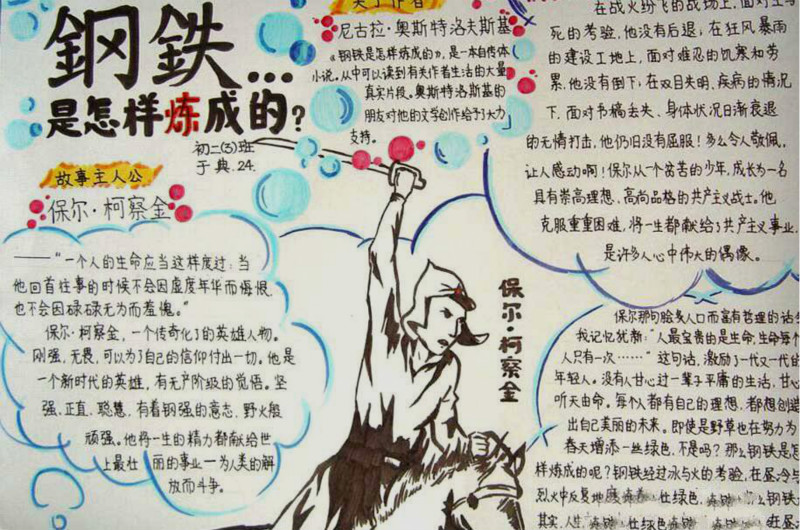 鋼鉄...
是怎样炼成的?
初二(3)班
于典.24.
关于作者
尼古拉·奥斯特洛夫斯基
《钢铁是怎样炼成的》,是一本自传体
小说。从中可以读到有关作者生活的大量
真实片段。奥斯特洛夫斯基的
朋友对他的文学创作给予大力
支持。
在战火纷飞的战场上,面对生与
死的考验,他没有后退;在狂风暴雨
的建设工地上,面对难忍的饥寒和劳
累,他没有倒下;在双目失明、疾病的情况
下,面对书稿丢失、身体状况日渐衰退
的无情打击,他仍旧没有屈服!多么令人敬佩,
让人感动啊!保尔从一个贫苦的少年,成长为一名
具有崇高理想,高尚品格的共产主义战士。他
克服重重困难,将一生都献给了共产主义事业,
是许多人心中伟大的偶像。
故事主人公
保尔·柯察金
——“一个人的生命应当这样度过:当
他回首往事的时候不会因虚度年华而悔恨,
也不会因碌碌无为而羞愧。”
保尔·柯察金,一个传奇化了的英雄人物。
刚强,无畏,可以为了自己的信仰付出一切。他是
一个新时代的英雄,有无产阶级的觉悟。坚
强、正直、聪慧,有着钢强的意志,野火般
顽强。他将一生的精力都献给世
上最壮丽的事业—为人类的解
放而斗争。
保尔·柯察金
保尔那句脍炙人口而富有哲理的话令
我记忆犹新:“人最宝贵的是生命,生命每个
人只有一次……”这句话,激励了一代又一代的
年轻人。没有人甘心过一辈子平庸的生活,甘心
听天由命。每个人都有自己的理想,都想创造
出自己美丽的未来。即使是野草也在努力为
春天增添一丝绿色,不是吗?那么钢铁是怎
样炼成的呢?钢铁经过冰与火的考验,在昼冷与
烈火中反复地
其实,人生